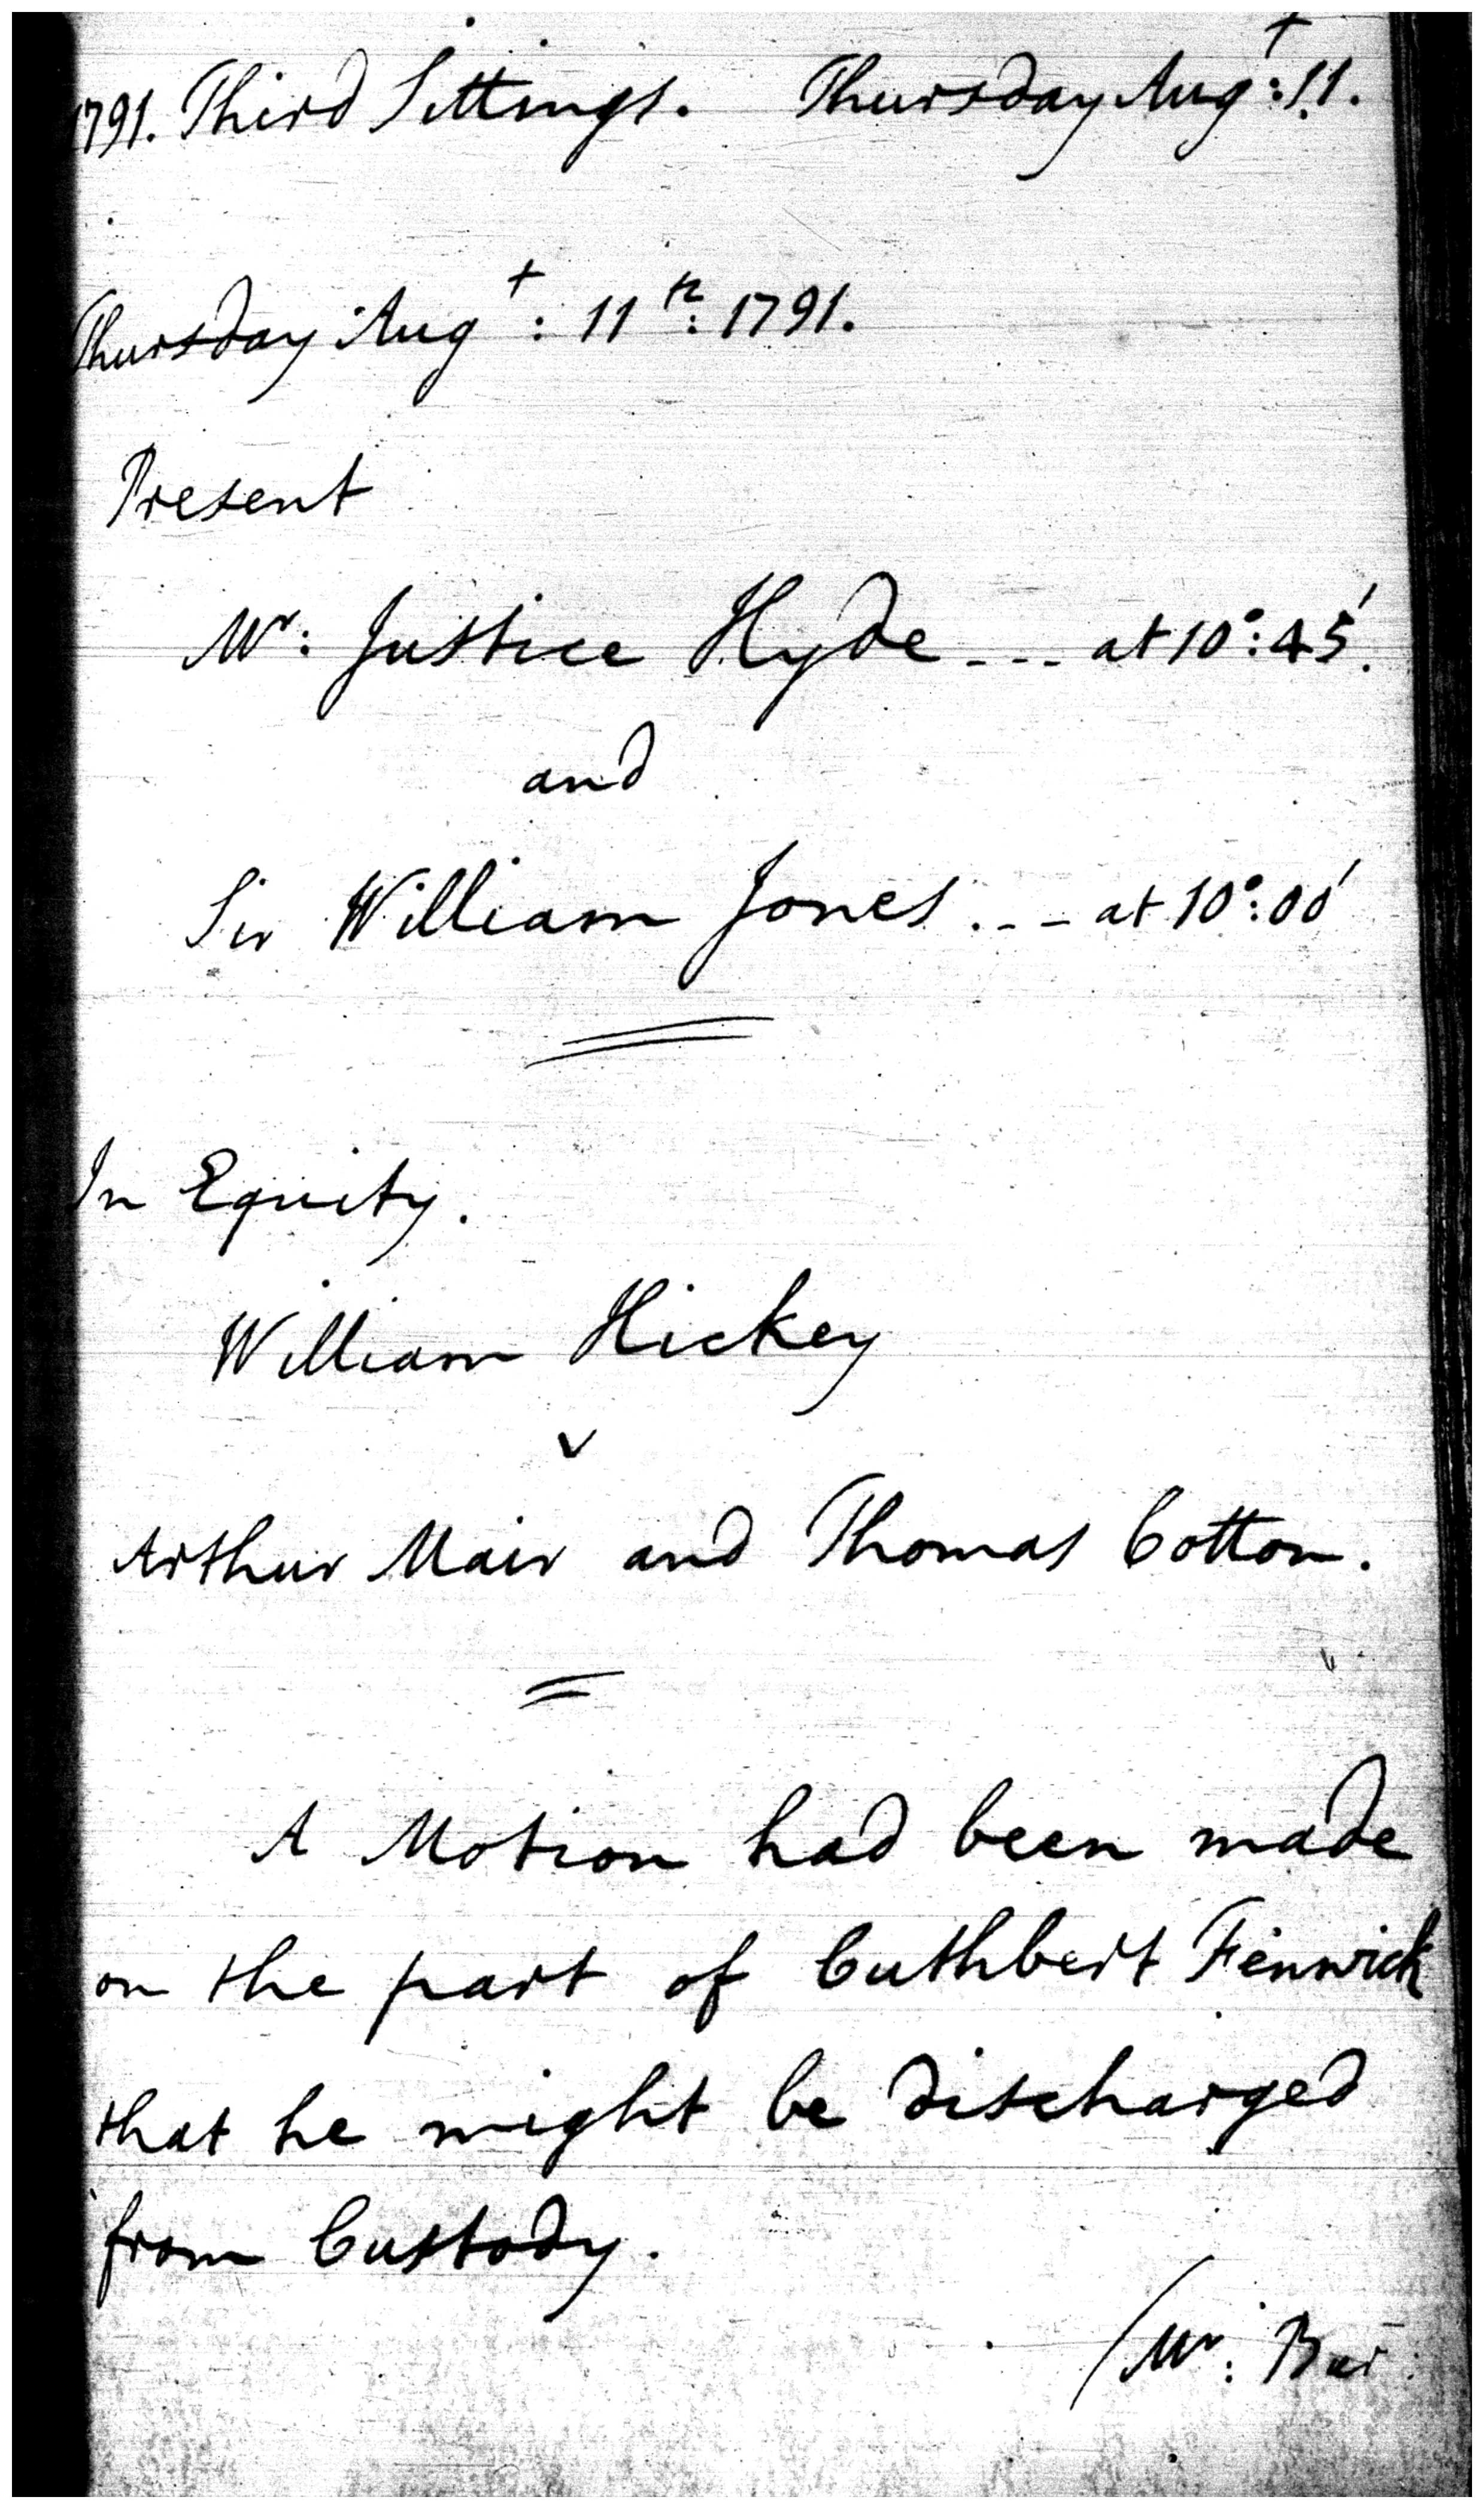 1791. Third Sittings. Thursday Augt: 11.
Thursday Augt: 11th: 1791.
Present
Mr: Justice Hyde --- at 10°: 45'.
and
Sir William Jones. -- at 10°: 00'
In Equity.
William Hickey
v
Arthur Mair and Thomas Cotton.
A Motion had been made
on the part of Cuthbert Fenwick
that he might be discharged
from Custody.
/Mr: